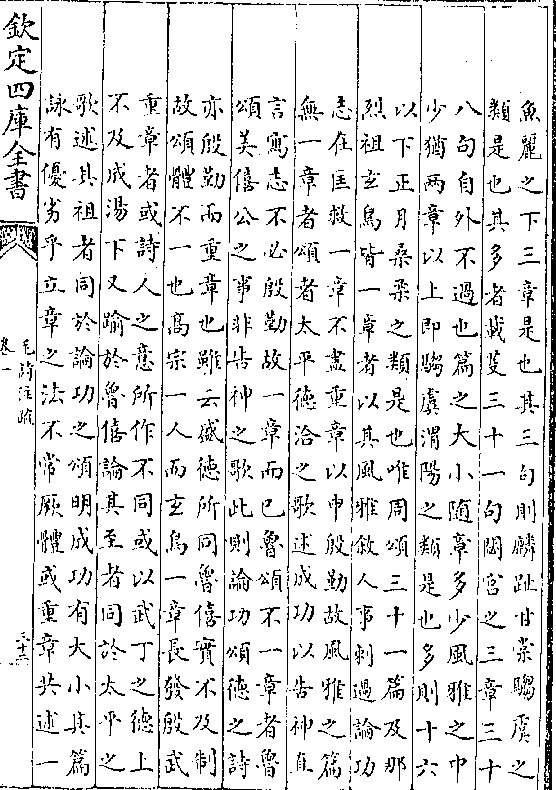 魚麗之下三章是也其三句則麟趾甘棠騶虞之
類是也其多者載芟三十一句閟宫之三章三十
八句自外不過也篇之大小隨章多少風雅之中
少猶兩章以上即騶虞渭陽之類是也多則十六
以下正月桑柔之類是也唯周頌三十一篇及那
烈祖玄鳥皆一章者以其風雅敘人事刺過論功
志在匡救一章不盡重章以申殷勤故風雅之篇
無一章者頌者太平德洽之歌述成功以告神直
言寫志不必殷勤故一章而已魯頌不一章者魯
頌美僖公之事非告神之歌此則論功頌德之詩
亦殷勤而重章也雖云盛德所同魯僖實不及制
故頌體不一也髙宗一人而玄鳥一章長發殷武
重章者或詩人之意所作不同或以武丁之德上
不及成湯下又踰於魯僖論其至者同於太平之
歌述其祖者同於論功之頌明成功有大小其篇
詠有優劣乎立章之法不常厥體或重章共述一
欽定四庫全書
毛詩注疏
卷一
三十二